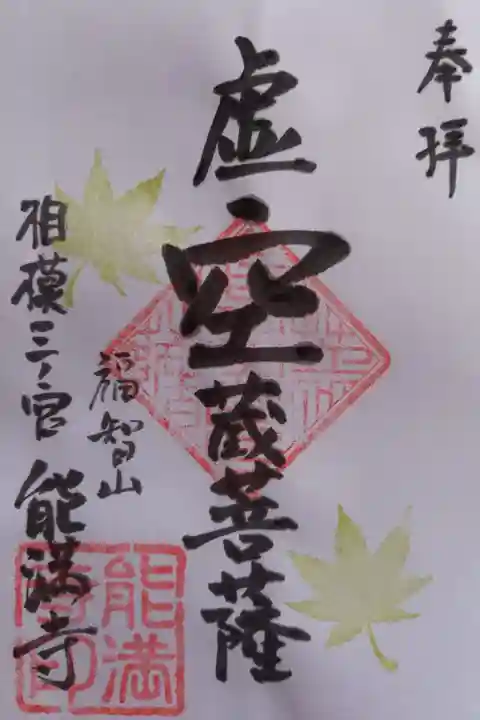 奉拝
虚空蔵菩薩
相模三ノ宮
福智山
能満寺
能満
寺印